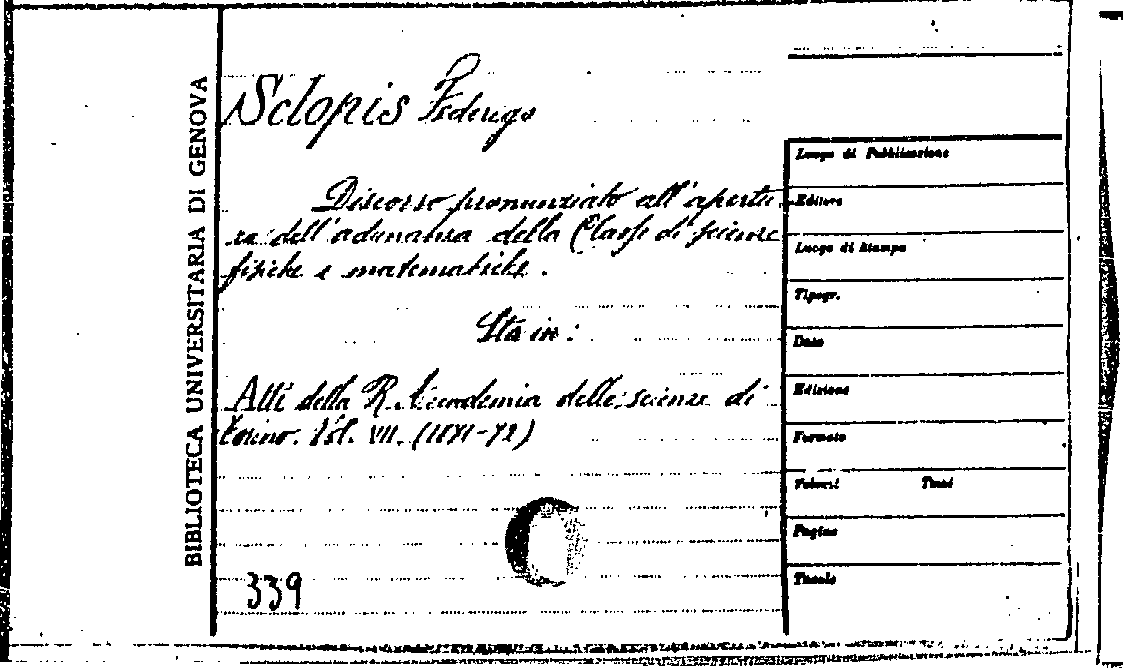 BIBLIOTECA UNIVERSITARIA DI GENOVA
Sclopis Federigo
Discorso pronunziato all'apertu-
ra dell'adunanza della Classe di scienze
fisiche e matematiche.
Sta in:
Atti della R. Accademia delle scienze di
Torino. Vol. VII. (1871-72)
339
Luogo di Pubblicazione
Editore
Luogo di Stampa
Tipogr.
Data
Edizione
Formato
Volumi Tomi
Pagine
Tavole